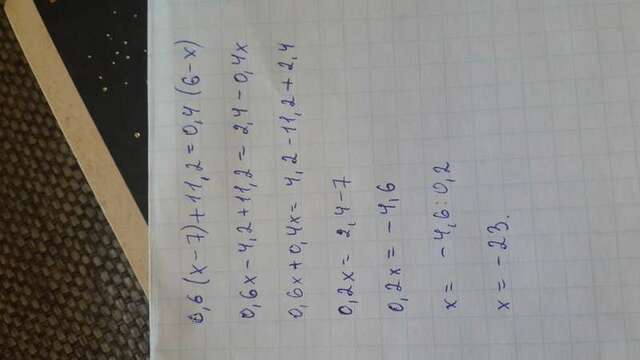 0,6(x-7)+11,2=0,4(6-x)
0,6x-4,2+11,2=2,4-0,4x
0,6x+0,4x=4,2-11,2+2,4
0,2x=2,4-7
0,2x=-4,6
x= -4,6:0,2
x=-23.